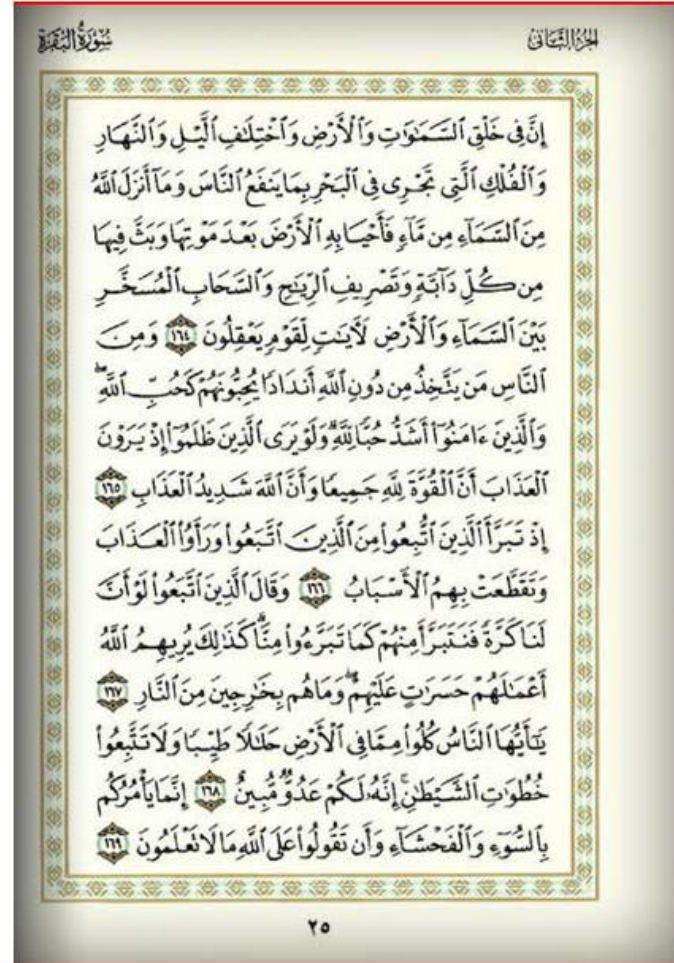 سُورَةُ البَقَرَةِ
الجُزْءُ الثَّانِى
إِنَّ فِى خَلْقِ ٱلسَّمَٰوَٰتِ وَٱلْأَرْضِ وَٱخْتِلَٰفِ ٱلَّيْلِ وَٱلنَّهَارِ
وَٱلْفُلْكِ ٱلَّتِى تَجْرِى فِى ٱلْبَحْرِ بِمَا يَنفَعُ ٱلنَّاسَ وَمَآ أَنزَلَ ٱللَّهُ
مِنَ ٱلسَّمَآءِ مِن مَّآءٍ فَأَحْيَا بِهِ ٱلْأَرْضَ بَعْدَ مَوْتِهَا وَبَثَّ فِيهَا
مِن كُلِّ دَآبَّةٍ وَتَصْرِيفِ ٱلرِّيَٰحِ وَٱلسَّحَابِ ٱلْمُسَخَّرِ
بَيْنَ ٱلسَّمَآءِ وَٱلْأَرْضِ لَءَايَٰتٍ لِّقَوْمٍ يَعْقِلُونَ ١٦٤ وَمِنَ
ٱلنَّاسِ مَن يَتَّخِذُ مِن دُونِ ٱللَّهِ أَندَادًا يُحِبُّونَهُمْ كَحُبِّ ٱللَّهِ ۖ
وَٱلَّذِينَ ءَامَنُوٓا۟ أَشَدُّ حُبًّا لِّلَّهِ ۗ وَلَوْ يَرَى ٱلَّذِينَ ظَلَمُوٓا۟ إِذْ يَرَوْنَ
ٱلْعَذَابَ أَنَّ ٱلْقُوَّةَ لِلَّهِ جَمِيعًا وَأَنَّ ٱللَّهَ شَدِيدُ ٱلْعَذَابِ ١٦٥
إِذْ تَبَرَّأَ ٱلَّذِينَ ٱتُّبِعُوا۟ مِنَ ٱلَّذِينَ ٱتَّبَعُوا۟ وَرَأَوُا۟ ٱلْعَذَابَ
وَتَقَطَّعَتْ بِهِمُ ٱلْأَسْبَابُ ١٦٦ وَقَالَ ٱلَّذِينَ ٱتَّبَعُوا۟ لَوْ أَنَّ
لَنَا كَرَّةً فَنَتَبَرَّأَ مِنْهُمْ كَمَا تَبَرَّءُوا۟ مِنَّا ۗ كَذَٰلِكَ يُرِيهِمُ ٱللَّهُ
أَعْمَٰلَهُمْ حَسَرَٰتٍ عَلَيْهِمْ ۖ وَمَا هُم بِخَٰرِجِينَ مِنَ ٱلنَّارِ ١٦٧
يَٰٓأَيُّهَا ٱلنَّاسُ كُلُوا۟ مِمَّا فِى ٱلْأَرْضِ حَلَٰلًا طَيِّبًا وَلَا تَتَّبِعُوا۟
خُطُوَٰتِ ٱلشَّيْطَٰنِ ۚ إِنَّهُۥ لَكُمْ عَدُوٌّ مُّبِينٌ ١٦٨ إِنَّمَا يَأْمُرُكُم
بِٱلسُّوٓءِ وَٱلْفَحْشَآءِ وَأَن تَقُولُوا۟ عَلَى ٱللَّهِ مَا لَا تَعْلَمُونَ ١٦٩
٢٥